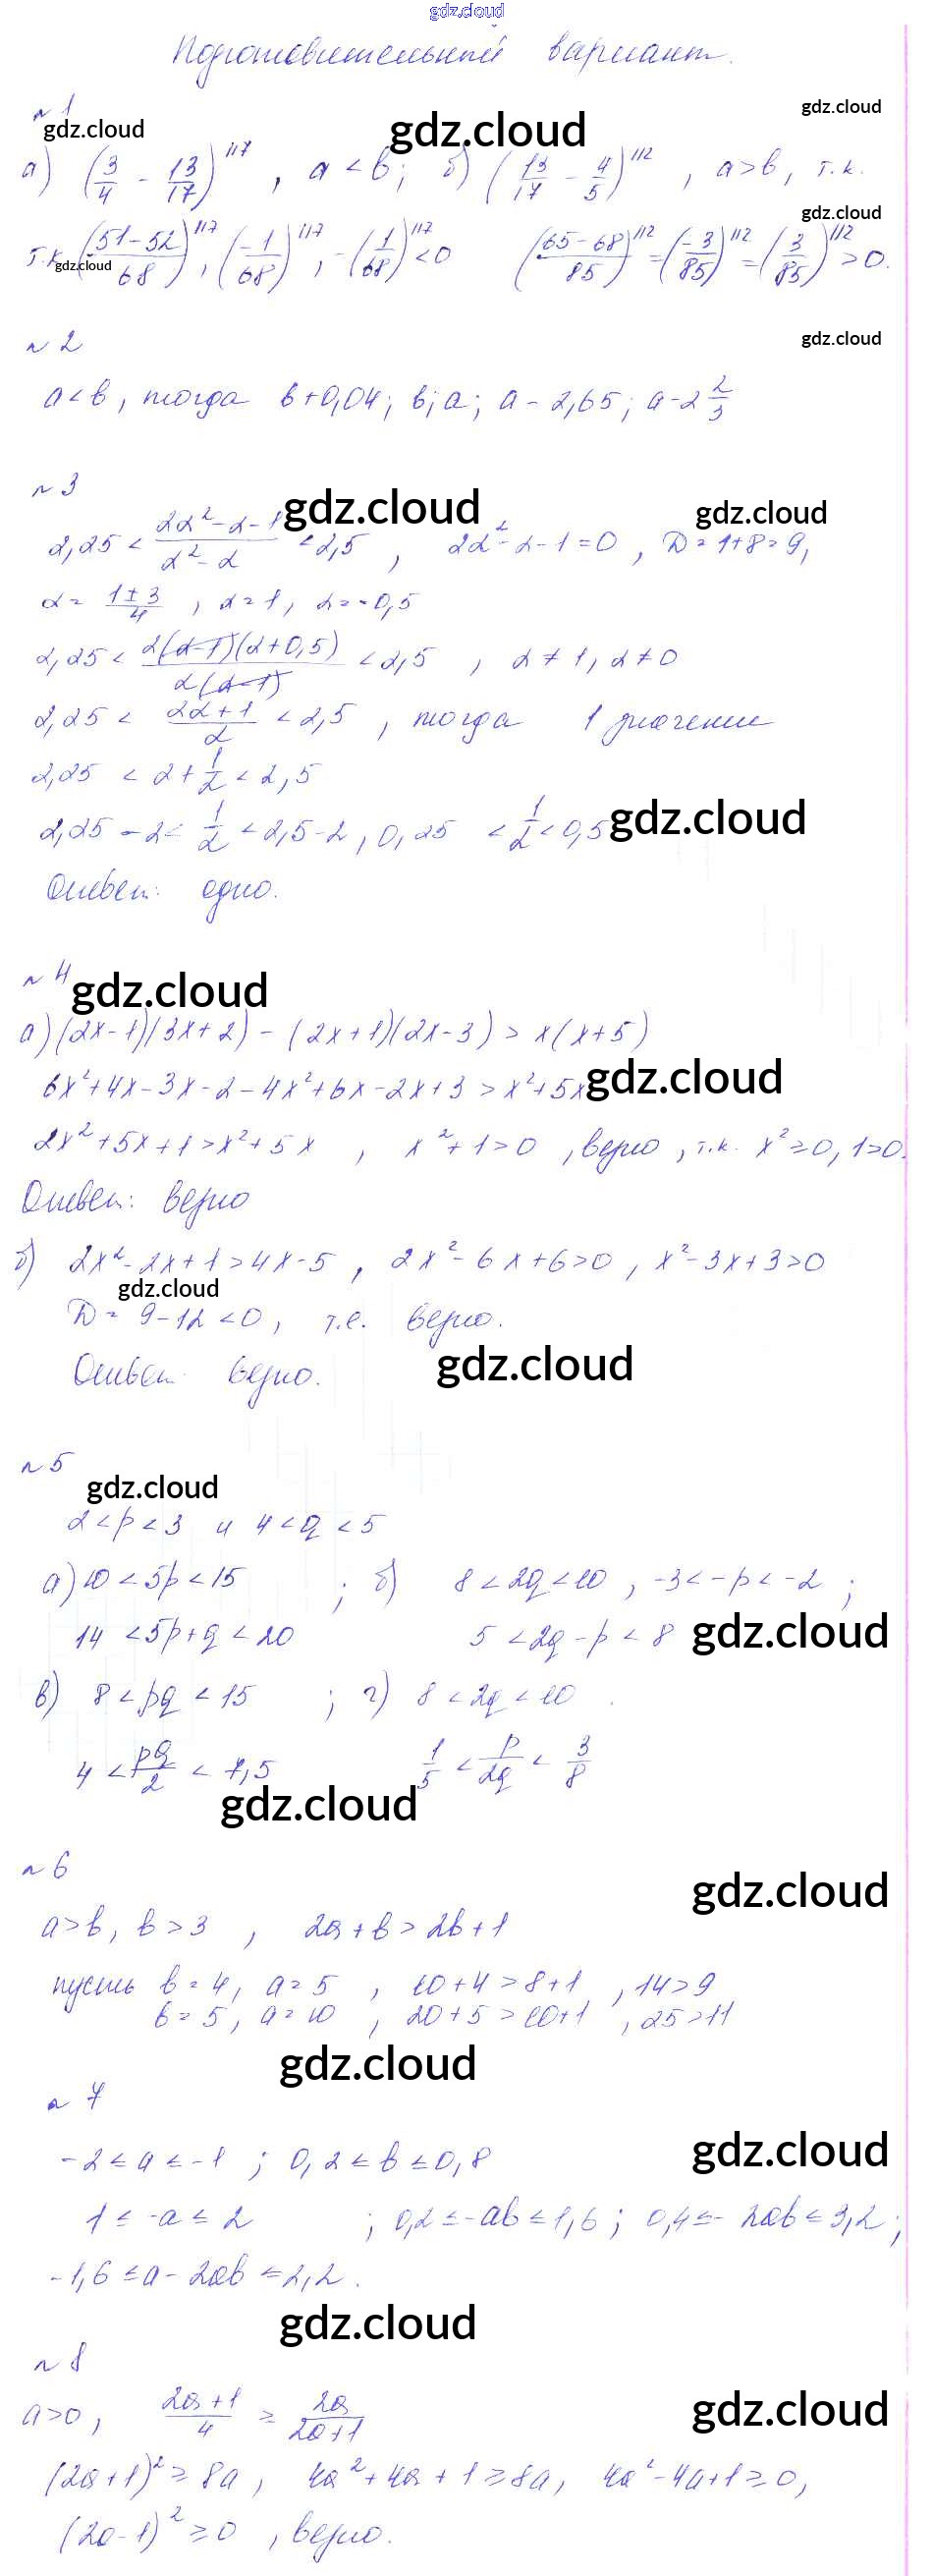 gdz.cloud
Подготовительный вариант.
№1
gdz.cloud gdz.cloud gdz.cloud
а) (3/4 - 13/17)^117, a < b; б) (13/17 - 4/5)^112, a > b, т.к.
gdz.cloud
т.к. ((51-52)/68)^117, (-1/68)^117, -(1/68)^117 < 0 ((65-68)/85)^112 = (-3/85)^112 = (3/85)^112 > 0.
gdz.cloud
№2 gdz.cloud
a < b, тогда b+0,04; b; a; a - 2,65; a - 2 2/3
№3
gdz.cloud gdz.cloud
2,25 < (2α² - α - 1)/(α² - α) < 2,5, 2α² - α - 1 = 0, D = 1+8 = 9,
α = (1±3)/4, α = 1, α = -0,5
2,25 < 2(α-1)(α+0,5)/α(α-1) < 2,5, α ≠ 1, α ≠ 0
2,25 < (2α+1)/α < 2,5, тогда 1 значение
2,25 < 2 + 1/α < 2,5
2,25 - 2 < 1/α < 2,5 - 2, 0,25 < 1/α < 0,5 gdz.cloud
Ответ: одно.
№4 gdz.cloud
а) (2x-1)(3x+2) - (2x+1)(2x-3) > x(x+5)
6x²+4x-3x-2-4x²+6x-2x+3 > x²+5x gdz.cloud
2x²+5x+1 > x²+5x, x²+1 > 0, верно, т.к. x² ≥ 0, 1 > 0.
Ответ: верно
б) 2x²-2x+1 > 4x-5, 2x²-6x+6 > 0, x²-3x+3 > 0
gdz.cloud
D = 9-12 < 0, т.е. верно.
Ответ: верно. gdz.cloud
№5
gdz.cloud
2 < p < 3 и 4 < q < 5
а) 10 < 5p < 15; б) 8 < 2q < 10, -3 < -p < -2;
14 < 5p+q < 20 5 < 2q - p < 8 gdz.cloud
в) 8 < pq < 15; г) 8 < 2q < 10.
4 < pq/2 < 7,5 1/5 < p/2q < 3/8
gdz.cloud
№6
gdz.cloud
a > b, b > 3, 2a + b > 2b + 1
пусть b = 4, a = 5, 10+4 > 8+1, 14 > 9
b = 5, a = 10, 20+5 > 10+1, 25 > 11
gdz.cloud
№7
gdz.cloud
-2 ≤ a ≤ -1; 0,2 ≤ b ≤ 0,8
1 ≤ -a ≤ 2; 0,2 ≤ -ab ≤ 1,6; 0,4 ≤ -2ab ≤ 3,2;
-1,6 ≤ a - 2ab ≤ 2,2.
gdz.cloud
№8
gdz.cloud
a > 0, (2a+1)/4 ≥ 2a/(2a+1)
(2a+1)² ≥ 8a, 4a²+4a+1 ≥ 8a, 4a²-4a+1 ≥ 0,
(2a-1)² ≥ 0, верно.